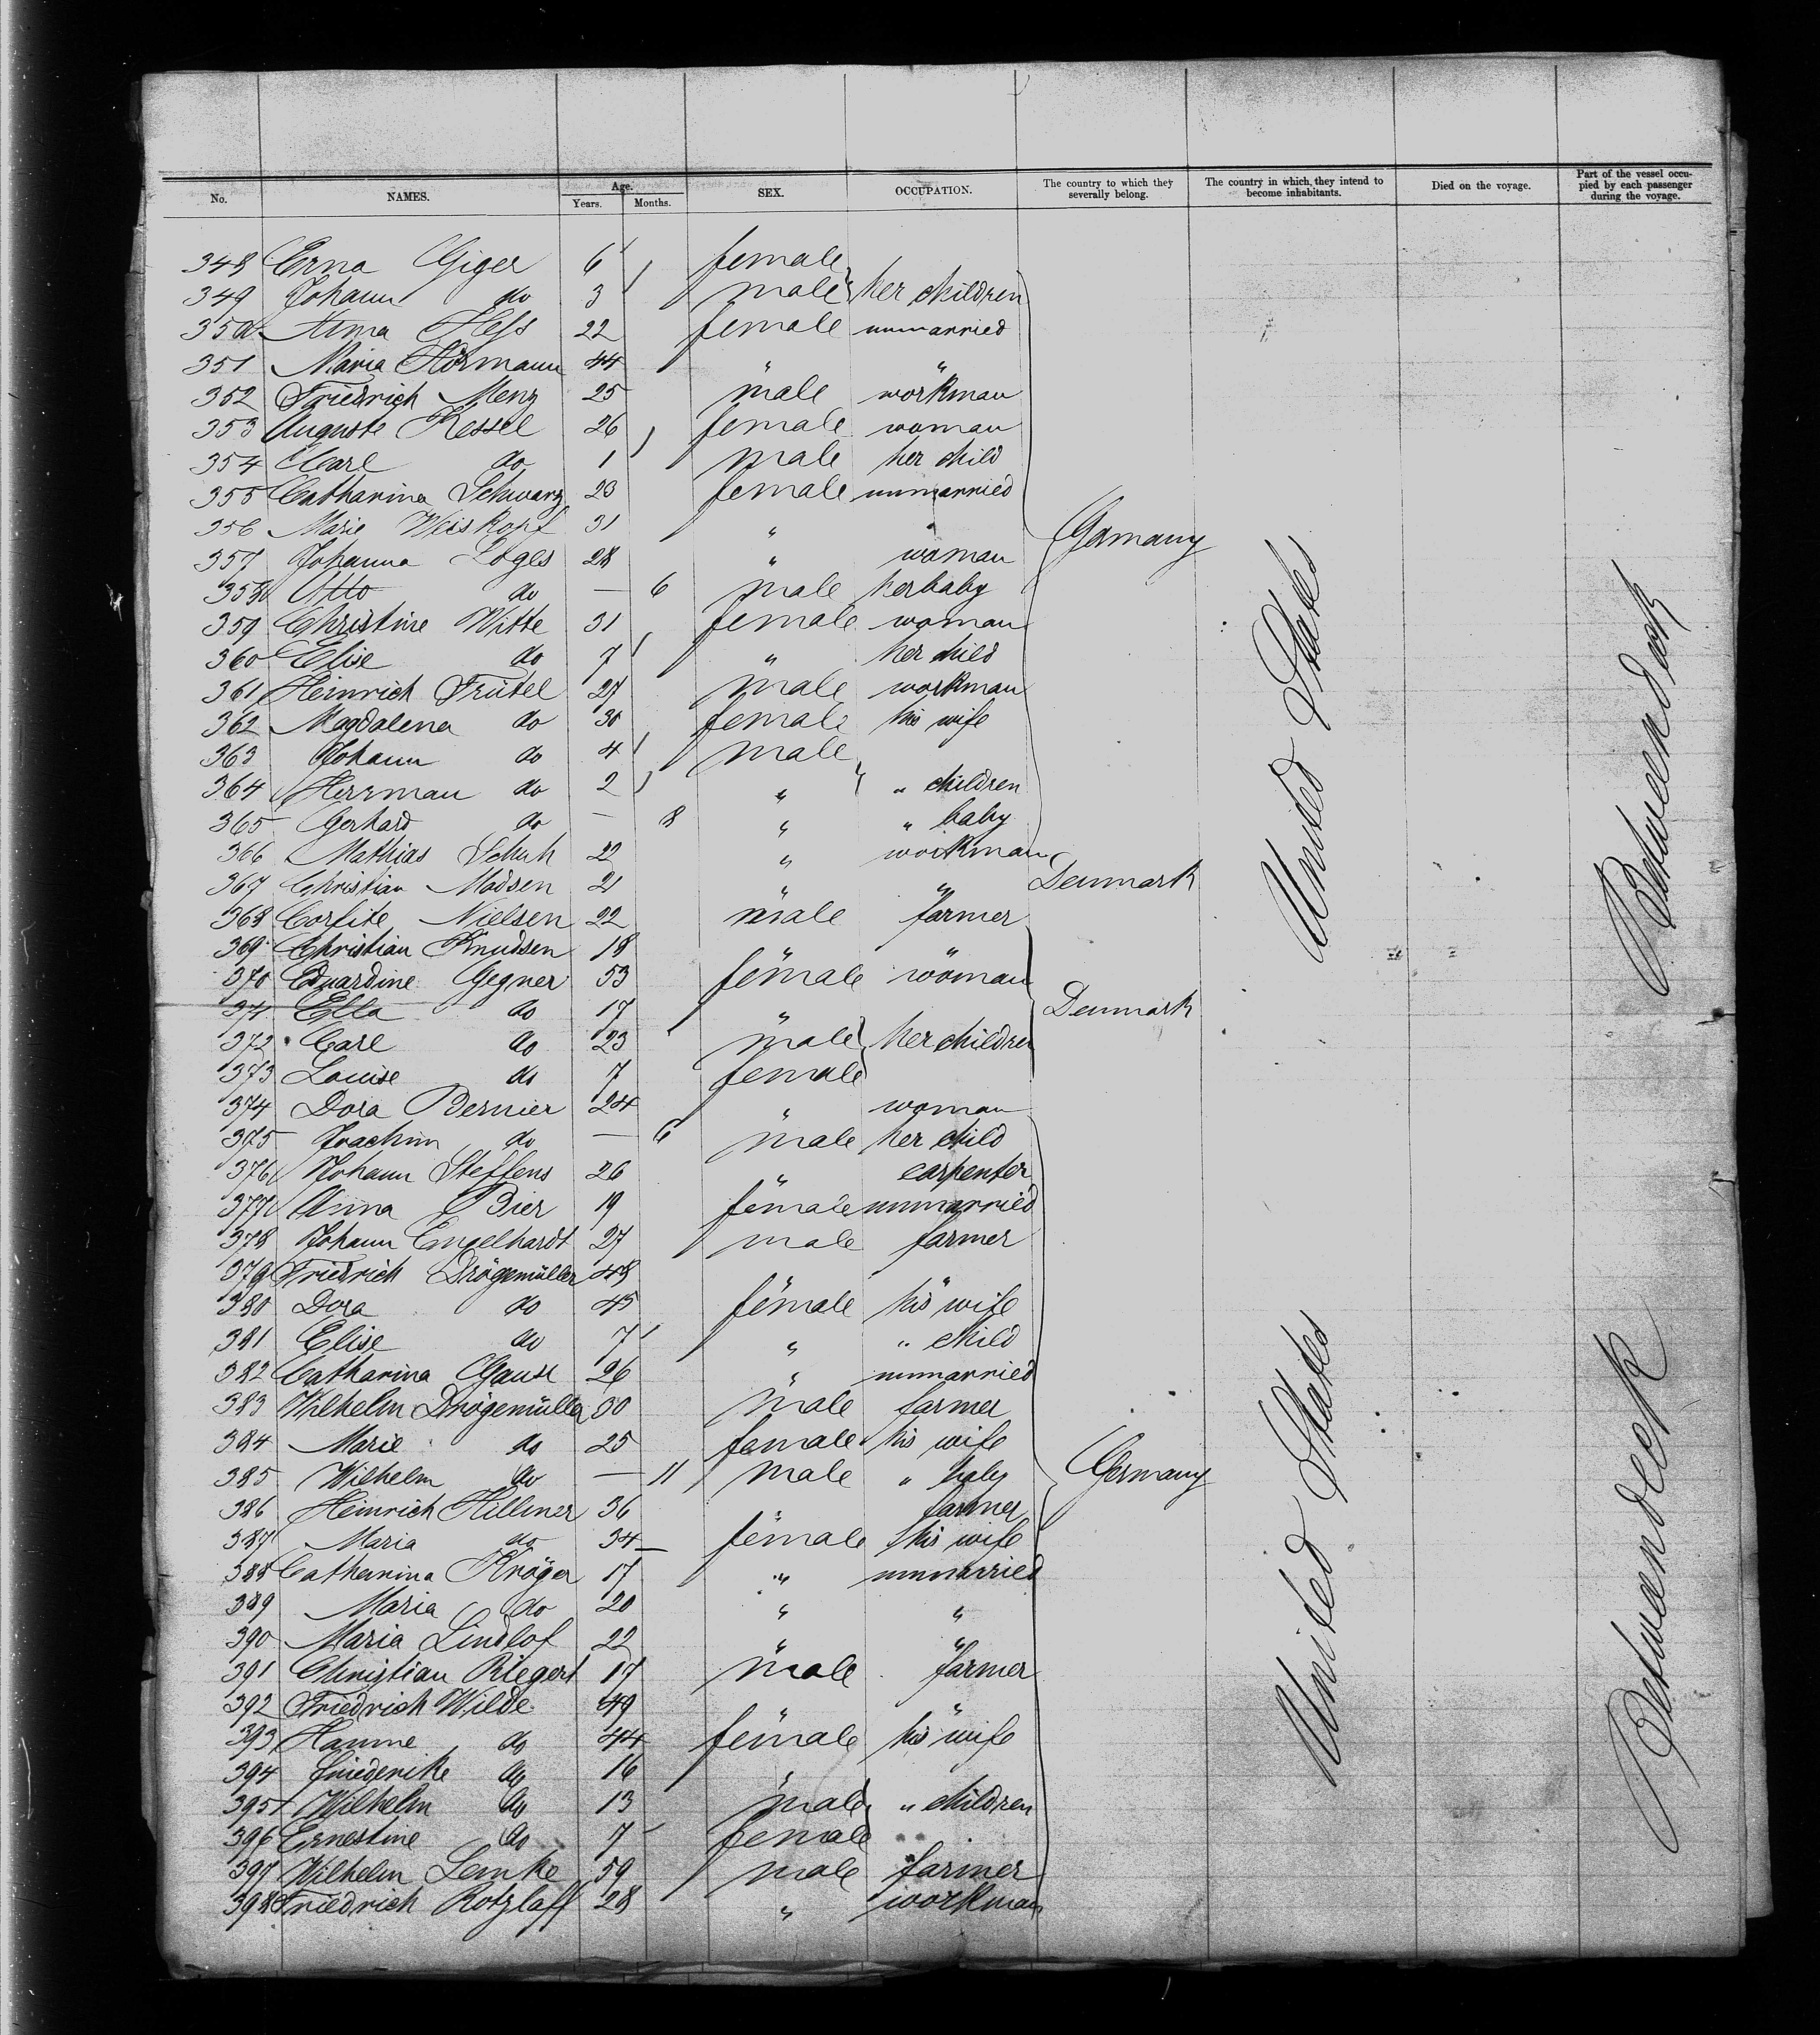 No. NAMES. Age. Years. Months. SEX. OCCUPATION. The country to which they severally belong. The country in which they intend to become inhabitants. Died on the voyage. Part of the vessel occupied by each passenger during the voyage.
348 Erna Giger 6 female
349 Johann do 3 male her children
350 Anna Hess 22 female unmarried
351 Maria Hörmann 44 " "
352 Friedrich Menz 25 male workman
353 Auguste Kessel 26 female woman
354 Carl do 1 male her child
355 Catharina Schwarz 23 female unmarried
356 Marie Weiskopf 31 " " Germany
357 Johanna Loges 28 " woman
358 Otto do — 6 male her baby
359 Christine Witte 31 female woman
360 Elise do 7 " her child
361 Heinrich Trütel 27 male workman
362 Magdalena do 30 female his wife
363 Johann do 4 male
364 Herrman do 2 " " children
365 Gerhard do — 8 " " baby
366 Mathias Schuh 22 " workman
367 Christian Madsen 21 " " Denmark
368 Corfite Nielsen 22 male farmer
369 Christian Knudsen 18 " "
370 Eduardine Gegner 53 female woman
371 Ella do 17 " Denmark
372 Carl do 23 male her children
373 Louise do 7 female
374 Dora Bernier 24 " woman
375 Joachim do — 6 male her child
376 Johann Steffens 26 " carpenter
377 Anna Bier 19 female unmarried
378 Johann Engelhardt 27 male farmer
379 Friedrich Drögemüller 48 " "
380 Dora do 45 female his wife
381 Elise do 7 " " child
382 Catharina Gause 26 " unmarried
383 Wilhelm Drögemüller 30 male farmer
384 Marie do 25 female his wife
385 Wilhelm do — 11 male " baby Germany
386 Heinrich Hillmer 36 " farmer
387 Maria do 34 female his wife
388 Catharina Kröger 17 " unmarried
389 Maria do 20 " "
390 Maria Lindlof 22 " "
391 Christian Riegert 17 male farmer
392 Friedrich Wilde 49 " "
393 Hanne do 44 female his wife
394 Friederike do 16 "
395 Wilhelm do 13 male " children
396 Ernestine do 7 female
397 Wilhelm Lemke 59 male farmer
398 Friedrich Rotzlaff 28 " workman
United States
Between deck
United States
Between deck